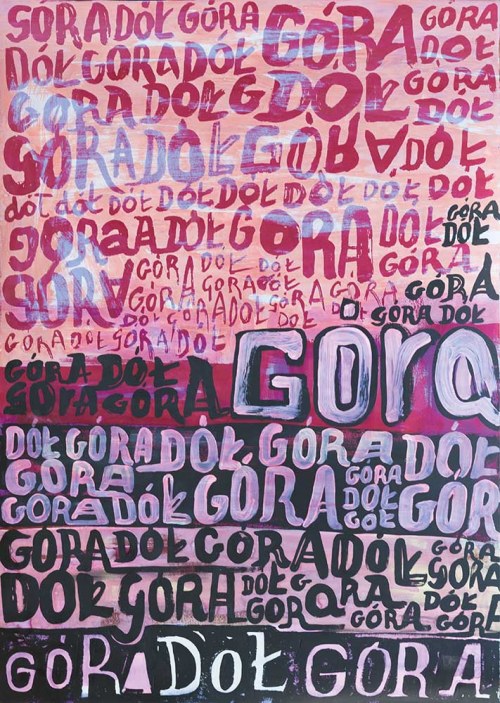 GÓRA DÓŁ GÓRA GÓRA GÓRA
DÓŁ
DÓŁ GÓRA DÓŁ GÓRA
GÓRA DÓŁ G DOŁ DÓŁ
GÓRA DÓŁ GÓRA DÓŁ
dół dół DÓŁ DÓŁ DÓŁ DÓŁ DÓŁ DÓŁ
GÓRaA DÓŁ GÓRA DÓŁ GÓRA
DÓŁ
GÓRA
GÓRA DÓŁ DÓŁ
GÓRA GÓRA GÓRA DÓŁ GÓRA
GÓRA DÓŁ GÓRA GÓRA
DÓŁ GÓRA DÓŁ DÓŁ GÓRA DÓŁ
GÓRA DÓŁ GÓRA DÓŁ
GÓRA DÓŁ GÓRA
GÓRA GÓRA
DÓŁ GÓRA DÓŁ GÓRA DÓŁ
GÓRA GÓRA GÓRA GÓR
DÓŁ
GÓRA DÓŁ GÓŁ
GÓRA DÓŁ GÓRA DÓŁ GÓRA
GÓRA
DOŁ GÓRA DÓŁ G DÓŁ
GORQRA GÓRA GÓRA
GÓRA DOŁ GÓRA